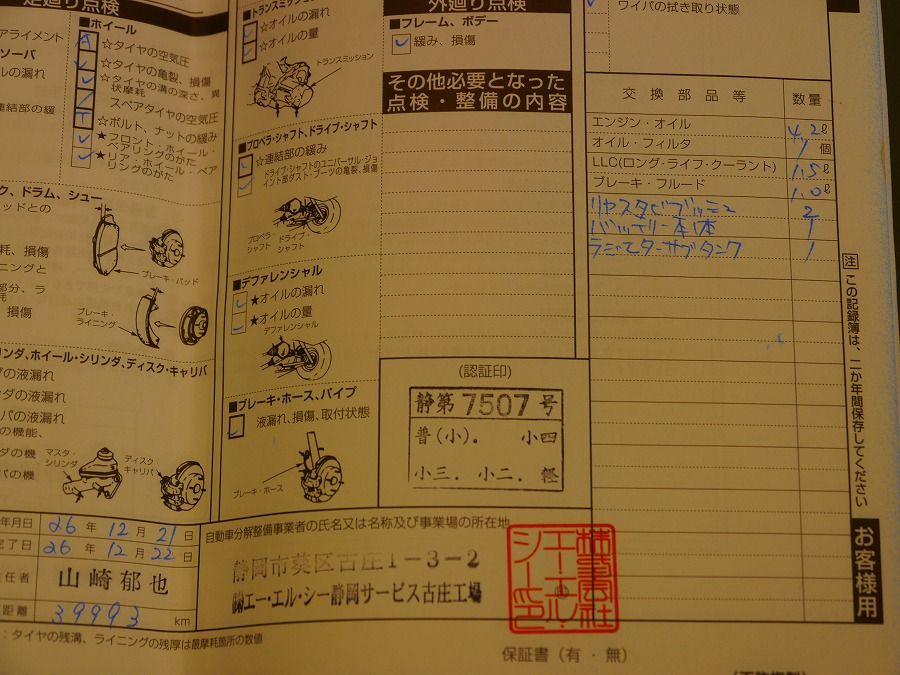 足廻り点検
■ホイール
☆タイヤの空気圧
☆タイヤの亀裂、損傷
☆タイヤの溝の深さ、異
状摩耗
スペアタイヤの空気圧
☆ボルト、ナットの緩み
★フロント・ホイール・
ベアリングのがた
★リア・ホイール・ベア
リングのがた
アライメント
ソーバ
ルの漏れ
連結部の緩
ク、ドラム、シュー
ッドとの
耗、損傷
ニングと
部分、ラ
耗
損傷
ブレーキ・パッド
ブレーキ・
ライニング
リンダ、ホイール・シリンダ、ディスク・キャリパ
ダの液漏れ
ンダの液漏れ
パの液漏れ
の機能、
ダの機
ンダの機
パの機
マスタ・
シリンダ
ディスク・
キャリパ
トランスミッション
☆オイルの漏れ
☆オイルの量
トランスミッション
■プロペラ・シャフト、ドライブ・シャフト
☆連結部の緩み
ドライブ・シャフトのユニバーサル・ジョ
イント部ダスト・ブーツの亀裂、損傷
プロペラ・
シャフト
ドライブ・
シャフト
■デファレンシャル
★オイルの漏れ
★オイルの量
デファレンシャル
■ブレーキ・ホース、パイプ
液漏れ、損傷、取付状態
ブレーキ・ホース
外廻り点検
■フレーム、ボデー
緩み、損傷
その他必要となった
点検・整備の内容
(認証印)
静第7507号
普(小). 小四
小三. 小二. 軽
ワイパの拭き取り状態
交換部品等 数量
エンジン・オイル 4.2ℓ
オイル・フィルタ 1個
LLC(ロング・ライフ・クーラント) 1.5ℓ
ブレーキ・フルード 1.0ℓ
リヤスタビブッシュ 2
バッテリー本体 1
ラジエターサブタンク 1
注 この記録簿は、二か年間保存してください
お客様用
年月日 26年12月21日
完了日 26年12月22日
主任者 山崎郁也
距離 39993 km
自動車分解整備事業者の氏名又は名称及び事業場の所在地
静岡市葵区古庄1-3-2
㈱エー・エル・シー静岡サービス古庄工場
株式会社
エー・エル・
シー印
:タイヤの残溝、ライニングの残厚は最摩耗箇所の数値
保証書(有・無)